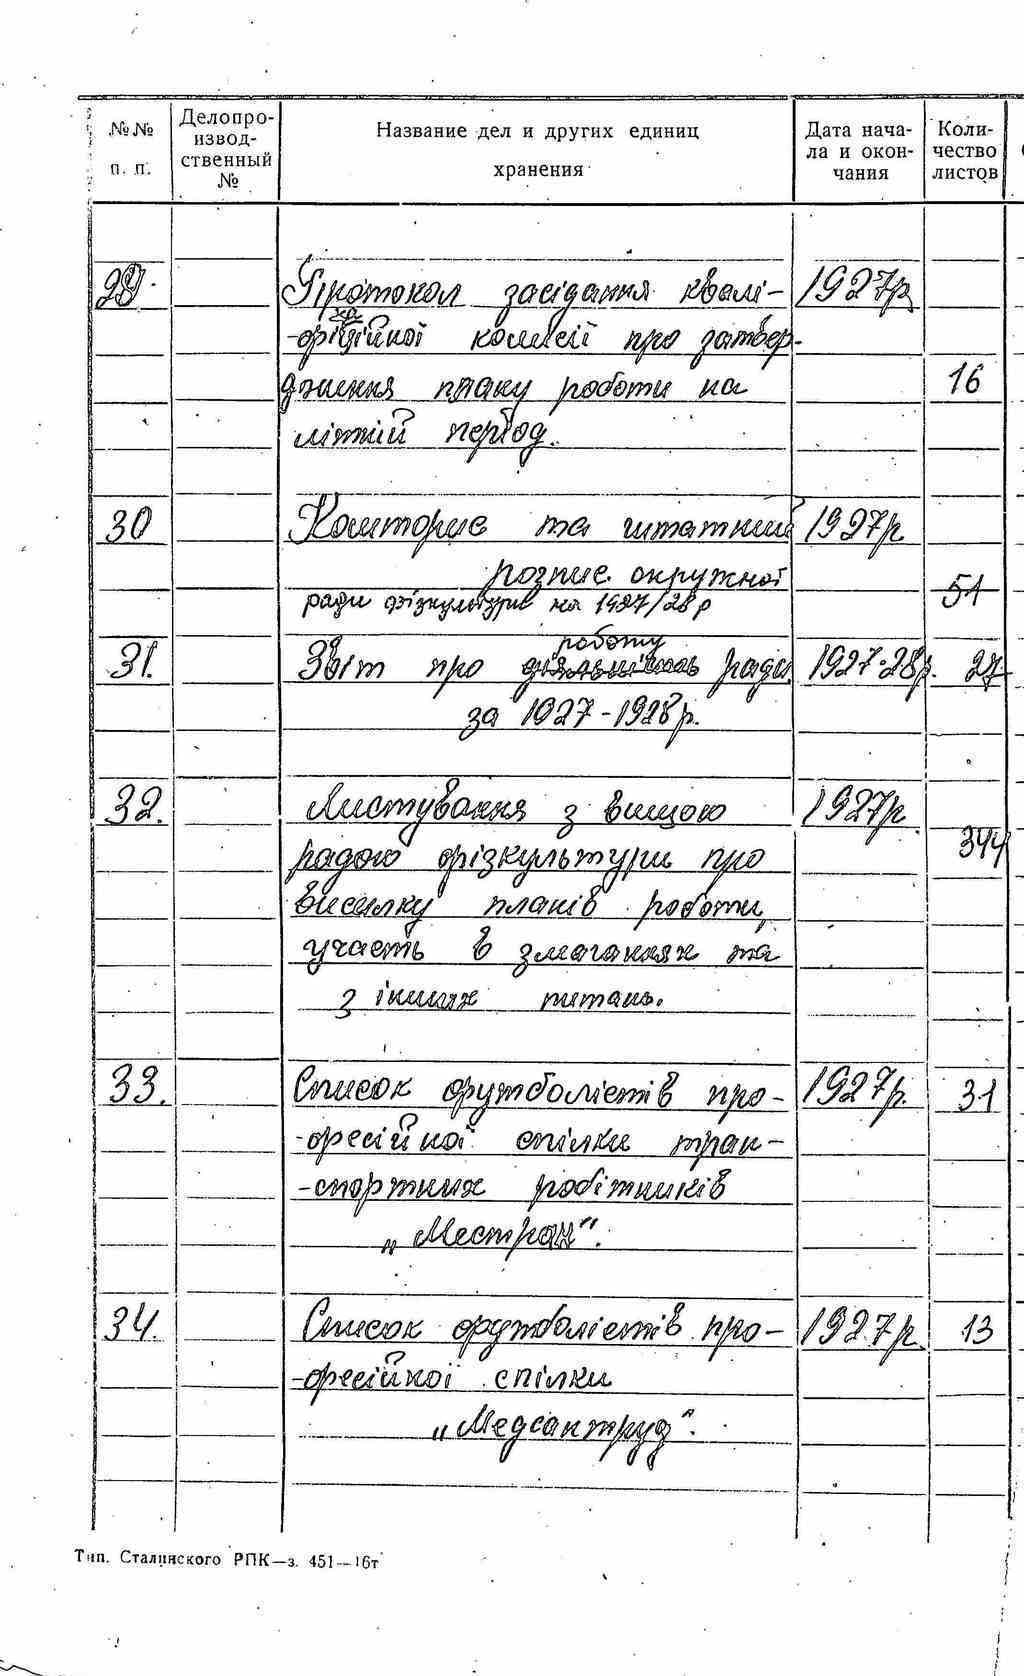 №№ п. п.
Делопроизводственный №
Название дел и других единиц хранения
Дата начала и окончания
Количество листов
29 Протокол засідання квалі- 1927р.
ка
-фіційної комісії про затвер-
дження плану роботи на 16
літній період.
30 Кошторис та штатний 1927р.
розпис окружної 51
ради фізкультури на 1927/28 р
роботу
31. Звіт про діяльність ради 1927-28р. 27
за 1927-1928р.
32. Листування з вищою 1927р.
радою фізкультури про 344
висилку планів роботи,
участь в змаганнях та
з інших питань.
33. Список футболістів про- 1927р. 31
-фесійної спілки тран-
-спортних робітників
„Местран".
34. Список футболістів про- 1927р. 13
-фесійної спілки
„Медсантруд".
Тип. Сталинского РПК—з. 451—16т